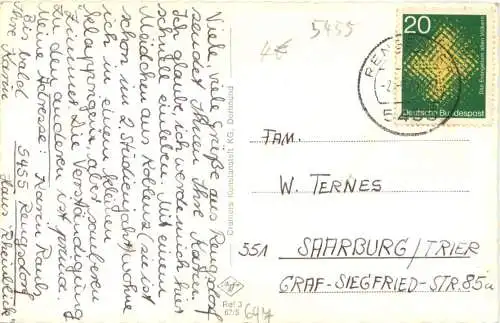 Viele viele Grüße aus Rengsdorf
sendet Ihnen Ihre Karin.
Ich glaube, ich werde mich hier
schnell einleben. Mit einem
Mädchen aus Koblenz (sie ist
schon im 2. Studienjahr) wohne
ich in einem kleinen
Klappzimmer, aber sauberen
Zimmer. Die Verständigung
zu den anderen ist prima.
Meine Adresse: Karin Rauh,
5455 Rengsdorf
Haus Rheinblick
Bis bald
Ihre Karin
Cramers Kunstanstalt KG, Dortmund
5455
4€
20
Das Evangelium allen Völkern
Deutsche Bundespost
FAM.
W. TERNES
551 SAARBURG/TRIER
GRAF-SIEGFRIED-STR.85a
Agfa
Ref 3
67/5
647